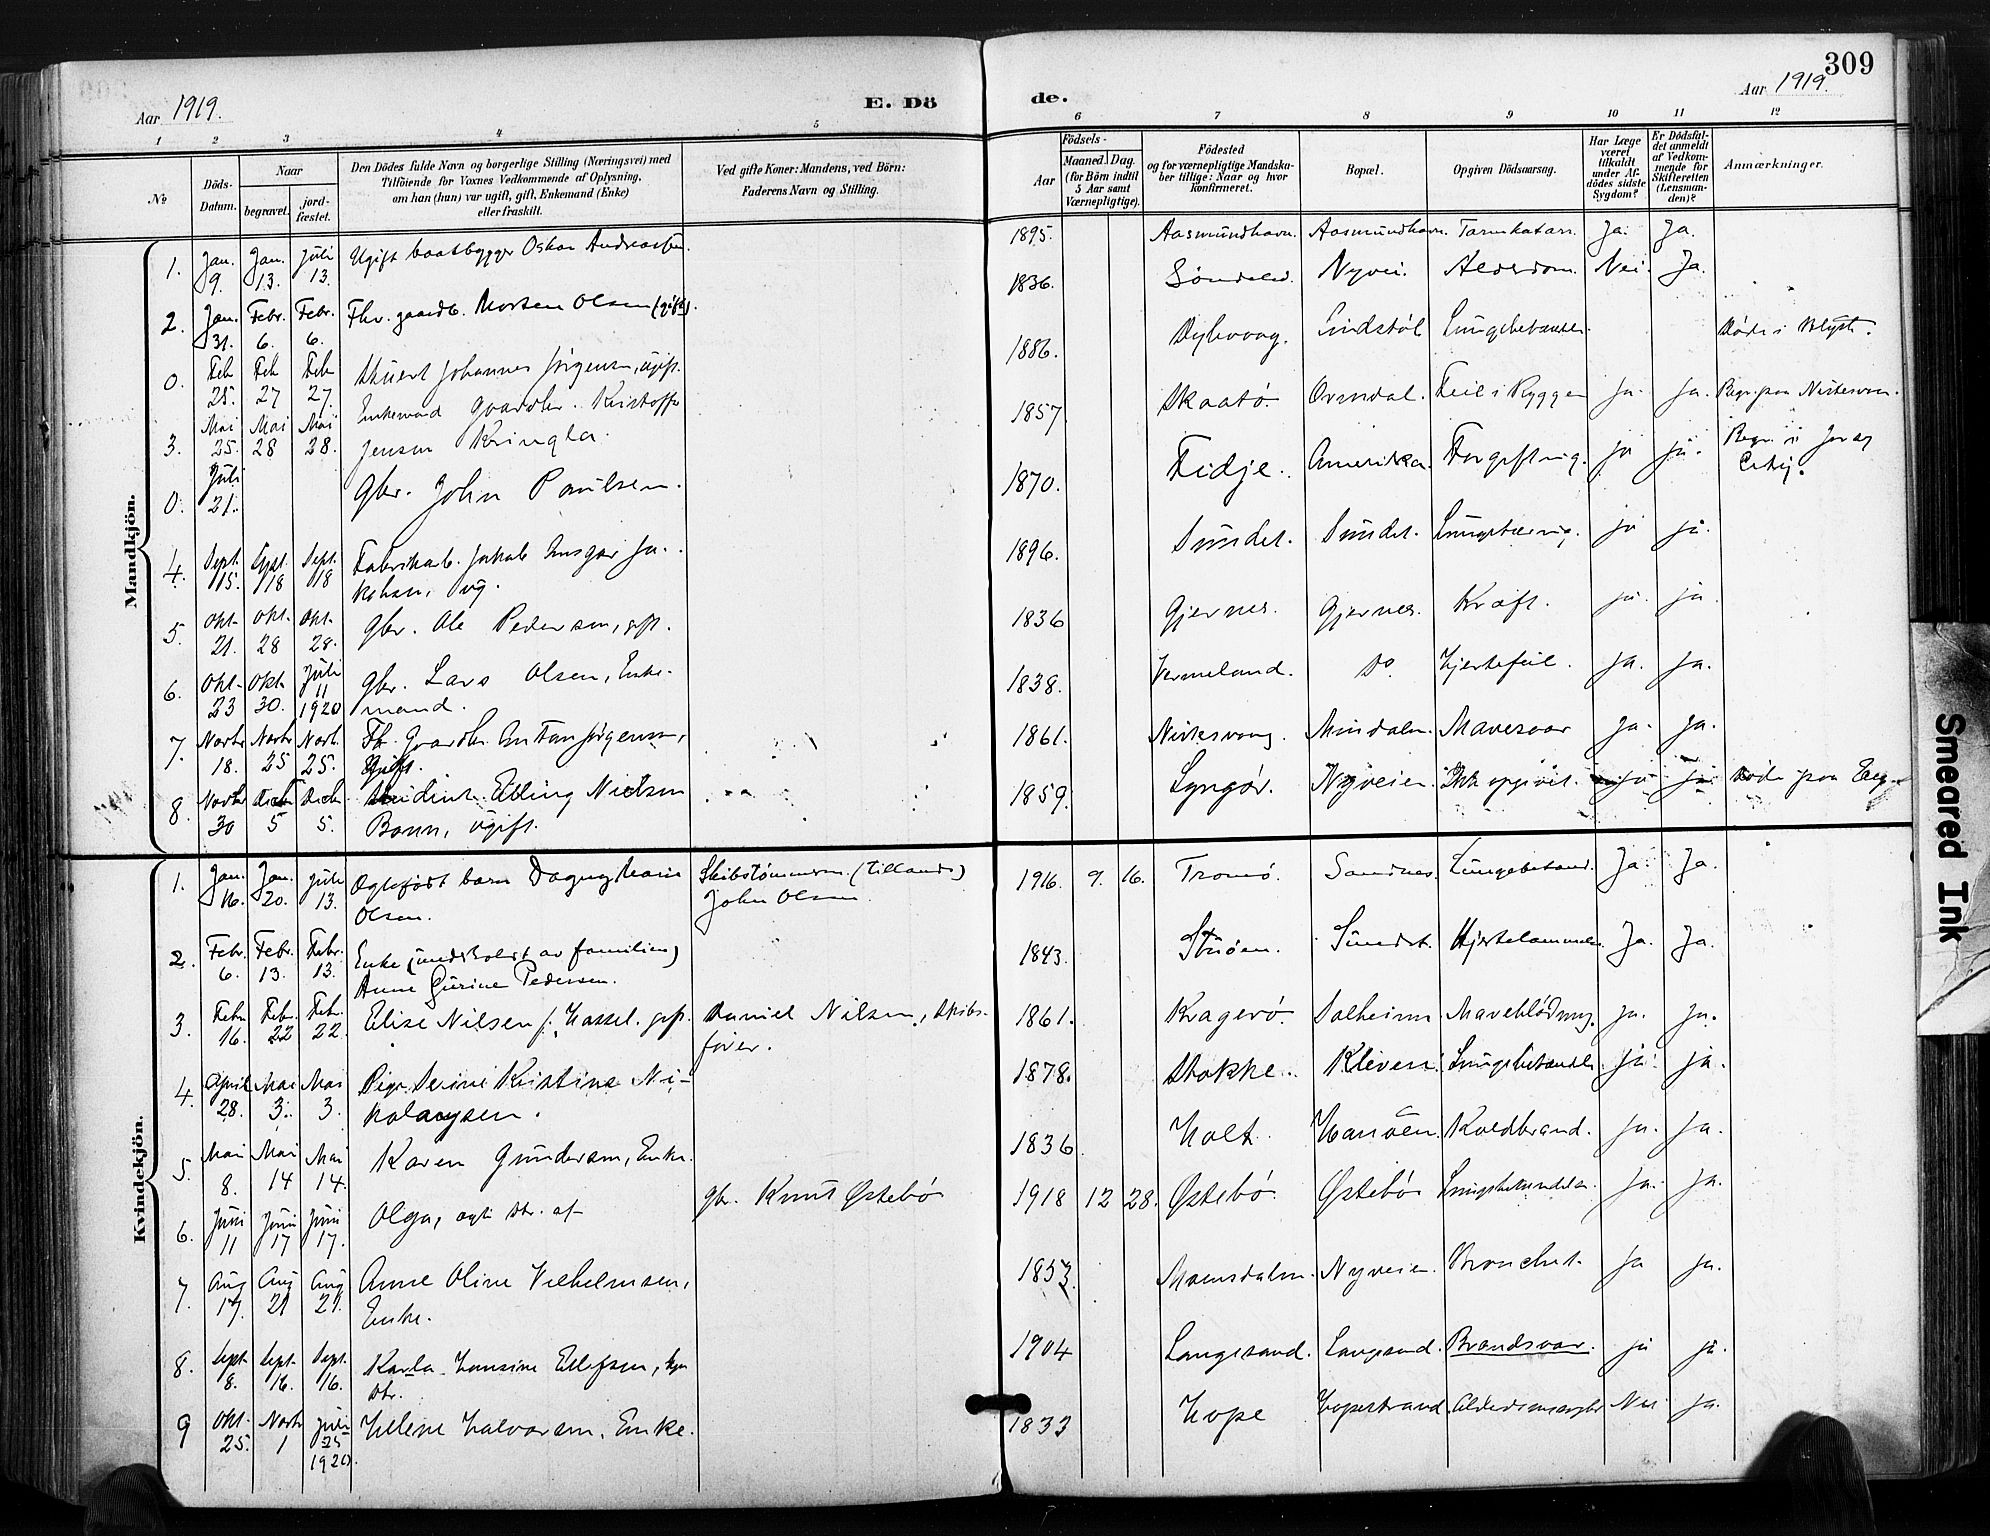 309
Aar 1919.
E. Dö
de.
Aar 1919.
1 2 3 4 5 6 7 8 9 10 11 12
№
Döds-Datum.
Naar
begravet.
jord-fæstet.
Den Dödes fulde Navn og borgerlige Stilling (Næringsvei) med
Tilföiende for Voxnes Vedkommende af Oplysning,
om han (hun) var ugift, gift, Enkemand (Enke)
eller fraskilt.
Ved gifte Koner: Mandens, ved Börn:
Faderens Navn og Stilling.
Födsels-
Aar
Maaned
Dag
(for Börn indtil
5 Aar samt
Værnepligtige).
Födested
og for værnepligtige Mandska-
ber tillige: Naar og hvor
konfirmeret.
Bopæl.
Opgiven Dödsaarsag.
Har Læge
været
tilkaldt
under Af-
dödes sidste
Sygdom?
Er Dödsfal-
det anmeldt
af Vedkom-
mende for
Skifteretten
(Lensman-
den)?
Anmærkninger.
Mandkjön.
1. Jan. 9. Jan. 13. Juli 13. Ugift baatbygger Oskar Andreassen. 1895. Aasmundhavn. Aasmundhavn. Tarmkatarr. Ja. Ja.
2. Jan. 31. Febr. 6. Febr. 6. Fhv. gaardb. Morten Olsen (gift). 1836. Söndeled. Nyvei. Alderdom. Nei. Ja.
0. Feb 25. Feb 27 Feb 27. Johannes Jörgensen, ugift. 1886. Dybvaag. Lindstöl
3. Mai 25. Mai 28 Mai 28. Enkemand Gaardbr. Kristoffer
Jensen Kringla. 1857 Skaatö. Ormdal. Feil i Ryggen ja. ja.
0. Juli 21. Gbr. John Paulsen. 1870. Fidje. Amerika. Forgiftnig. ja ja.
4. Sept. 15. Sept. 18 Sept. 18 Fabrikarb. Jakob Ansgar Ja-
kobsen, ug. 1896. Sundet. Sundet. Lungetæring. ja ja.
5. Okt. 21. Okt. 28 Okt. 28. Gbr. Ole Pedersen, gft. 1836 Gjernes. Gjernes. Kræft. ja. ja.
6. Okt. 23 Okt. 30. Juli 11 1920 Gbr. Lars Olsen, Enke-
mand. 1838. Vermeland. Do. Hjertefeil. ja. ja.
7. Novbr 18. Novbr 25 Novb. 25. Fh. Gaardbr. Anton Jörgensen,
Gift. 1861. Mindalen. Mavesaar ja. ja.
8. Novbr 30 Decbr 5 Decbr. 5. Elling Nielsen
Bonn, ugift. 1859. Lyngör. Nyveien. Ikke opgivet. ja ja
Kvindekjön.
1. Jan. 16. Jan. 20. Juli 13. Ægtefödt barn Dagny Marie
Olsen. Skibstömmerm. (Tillands)
John Olsen. 1916. 9. 16. Tromö. Sandnes. Lungebetænd. Ja. Ja.
2. Febr. 6. Febr. 13. Febr. 13. Enke (underholdt av familien)
Anne Gurine Pedersen. 1843. Stuöen. Sundet. Hjertelammelse. Ja. Ja.
3. Febr. 16. Febr. 22 Febr. 22. Elise Nilsen f. Hassel. gift. Daniel Nilsen, Skibs-
förer. 1861. Kragerö. Solheim Maveblödning. ja. ja.
4. April 28. Mai 3. Mai 3. Pige Serine Kristine Ni-
kolaysen. 1878. Stokke. Kleven. Lungebetændelse ja. ja.
5. Mai 8. Mai 14 Mai 14. Karen Gundersen, Enke. 1836 Holt. Hansöen. Koldbrand. ja. ja.
6. Juni 11 Juni 17 Juni 17. Olga, ægte dtr. af Gbr. Knut Östebö 1918 12 28. Östebö. Östebö Lungebetændelse. ja. ja.
7. Aug 17. Aug 21 Aug 21. Anne Oline Vilhelmsen,
Enke. 1853. Nyveien. Bronchit. ja ja.
8. Sept. 8. Sept. 16. Sept. 16. Karla Hansine Ellefsen,
dtr. 1904 Langesand. Langesand. Brandsaar. ja ja.
9 Okt. 25. Novbr 1 Juli 25 1920. Helene Halvorsen, Enke. 1833 Hope Hopestrand. Nei ja.
Smeared Ink